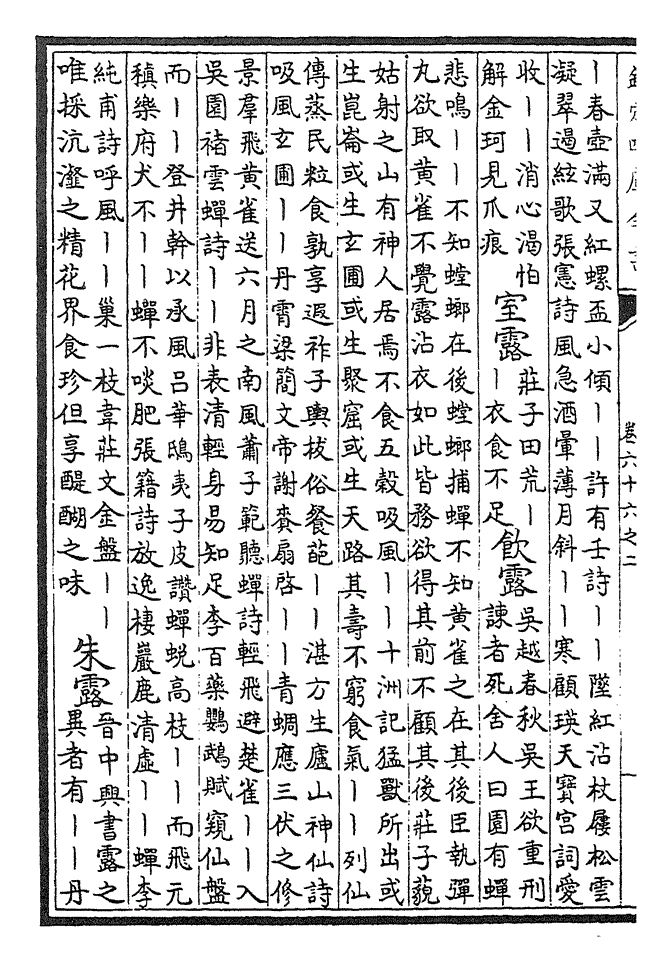 欽定四庫全書
卷六十六之二
｜春壺滿又紅螺盃小傾｜｜許有壬詩｜｜墜紅沾杖屨松雲
凝翠遏絃歌張憲詩風急酒暈薄月斜｜｜寒顧瑛天寳宫詞愛
收｜｜消心渴怕
解金珂見爪痕
室露
莊子田荒｜
｜衣食不足
飲露
吳越春秋吳王欲重刑
諫者死舍人曰園有蟬
悲鳴｜｜不知螳螂在後螳螂捕蟬不知黄雀之在其後臣執彈
丸欲取黄雀不覺露沾衣如此皆務欲得其前不顧其後莊子藐
姑射之山有神人居焉不食五穀吸風｜｜十洲記猛獸所出或
生崑崙或生玄圃或生聚窟或生天路其壽不窮食氣｜｜列仙
傳蒸民粒食孰享遐祚子輿拔俗餐葩｜｜湛方生廬山神仙詩
吸風玄圃｜｜丹霄梁簡文帝謝賚扇啓｜｜青蜩應三伏之修
景羣飛黄雀送六月之南風蕭子範聽蟬詩輕飛避楚雀｜｜入
吳園褚雲蟬詩｜｜非表清輕身易知足李百藥鸚鵡賦窺仙盤
而｜｜登井幹以承風吕華鴟夷子皮讚蟬蜕高枝｜｜而飛元
稹樂府犬不｜｜蟬不啖肥張籍詩放逸棲巖鹿清虚｜｜蟬李
純甫詩呼風｜｜巢一枝韋莊文金盤｜｜
唯採沆瀣之精花界食珍但享醍醐之味
朱露
晉中興書露之
異者有｜｜丹